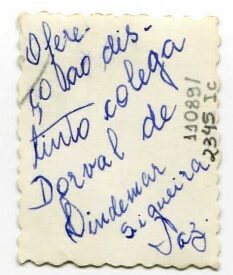 Ofere-
ço ao dis-
tinto colega
Dorval de
Lindemar
Siqueira
Vaz.
110891
2345 Ic